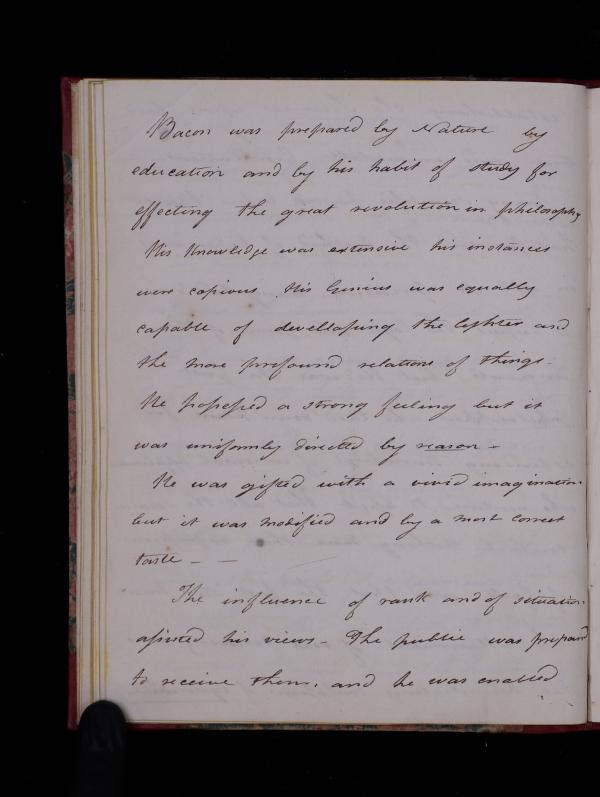 Bacon was prepared by Nature by
education and by his habit of study for
effecting the great revolution in philosophy
His Knowledge was extensive his instances
were copious. His Genius was equally
capable of devellopING the lighter and
the more profound relations of things -
He possessed a strong feeling but it
was uniformly directed by reason -
He was gifted with a vivid imagination
but it was modified and by a most correct
taste - -
The influence of rank and of situation
assisted his views - The public was prepared
to receive them. and he was enabled